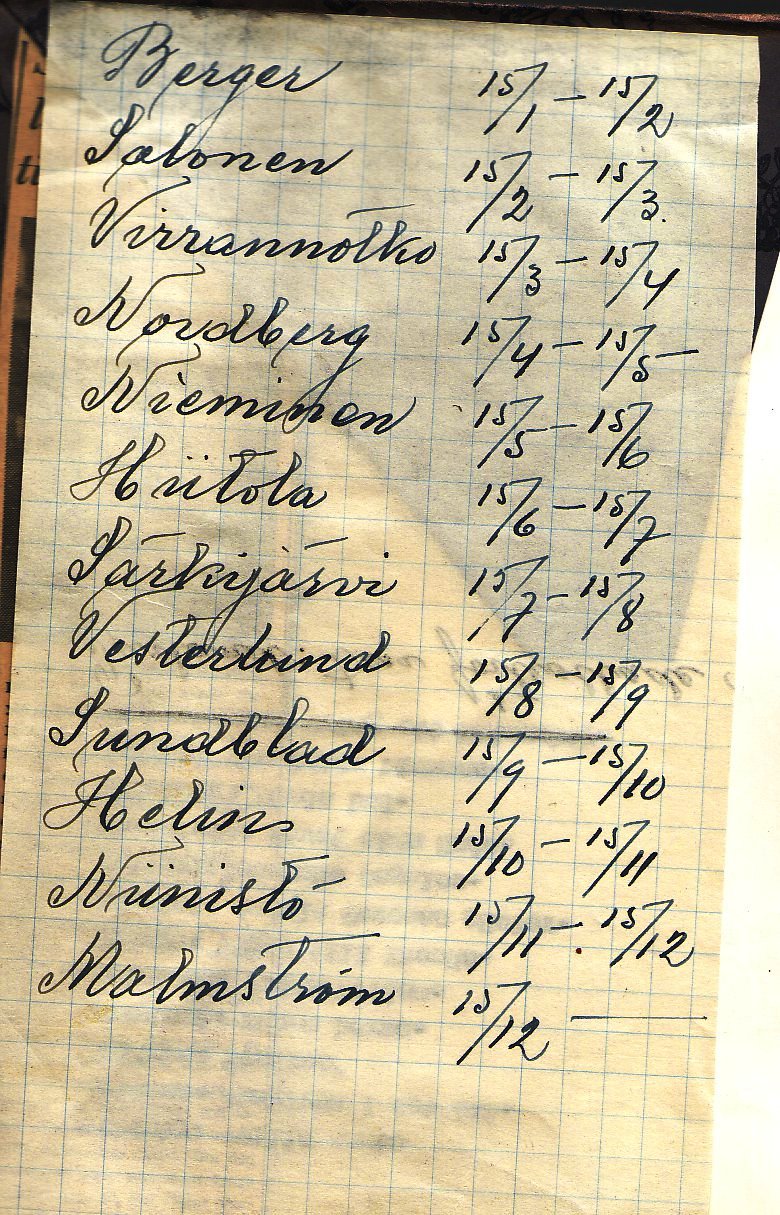 Berger 15/1 – 15/2
Salonen 15/2 – 15/3
Virrannotko 15/3 – 15/4
Nordberg 15/4 – 15/5
Nieminen 15/5 – 15/6
Hiitola 15/6 – 15/7
Särkijärvi 15/7 – 15/8
Vesterlund 15/8 – 15/9
Sundblad 15/9 – 15/10
Helins 15/10 – 15/11
Niinistö 15/11 – 15/12
Malmström 15/12 –